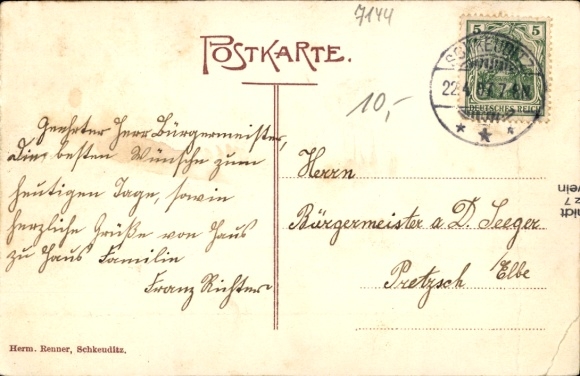 7144
POSTKARTE.
5 5
DEUTSCHES REICH
SCHKEUDITZ
22.4.07.7-8N.
10,-
Geehrter Herr Bürgermeister,
Die besten Wünsche zum
heutigen Tage, sowie
herzliche Grüße von Haus
zu Haus Familie
Franz Richter
Herrn
Bürgermeister a. D. Seeger
Pretzsch /Elbe
Herm. Renner, Schkeuditz.